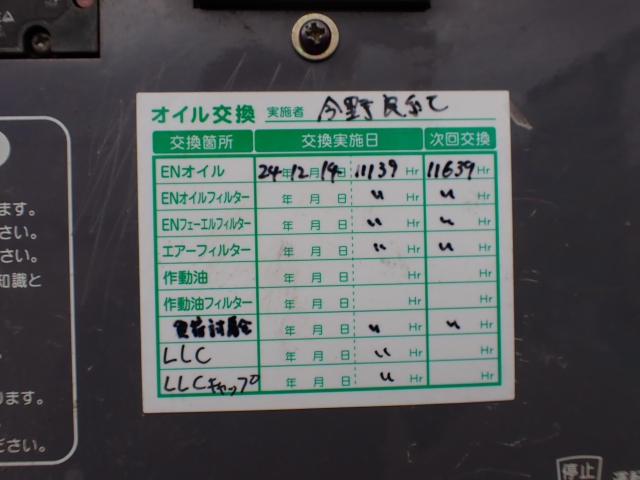 オイル交換 実施者 今野
交換箇所 交換実施日 次回交換
ENオイル 24年12月19日 11139Hr 11639Hr
ENオイルフィルター 年 月 日 〃 Hr 〃 Hr
ENフューエルフィルター 年 月 日 〃 Hr 〃 Hr
エアーフィルター 年 月 日 〃 Hr 〃 Hr
作動油 年 月 日 Hr Hr
作動油フィルター 年 月 日 Hr Hr
年 月 日 〃 Hr 〃 Hr
LLC 年 月 日 〃 Hr Hr
LLCキャップ 年 月 日 〃 Hr Hr
ます。
さい。
さい。
知識と
ります。
ださい。
停止